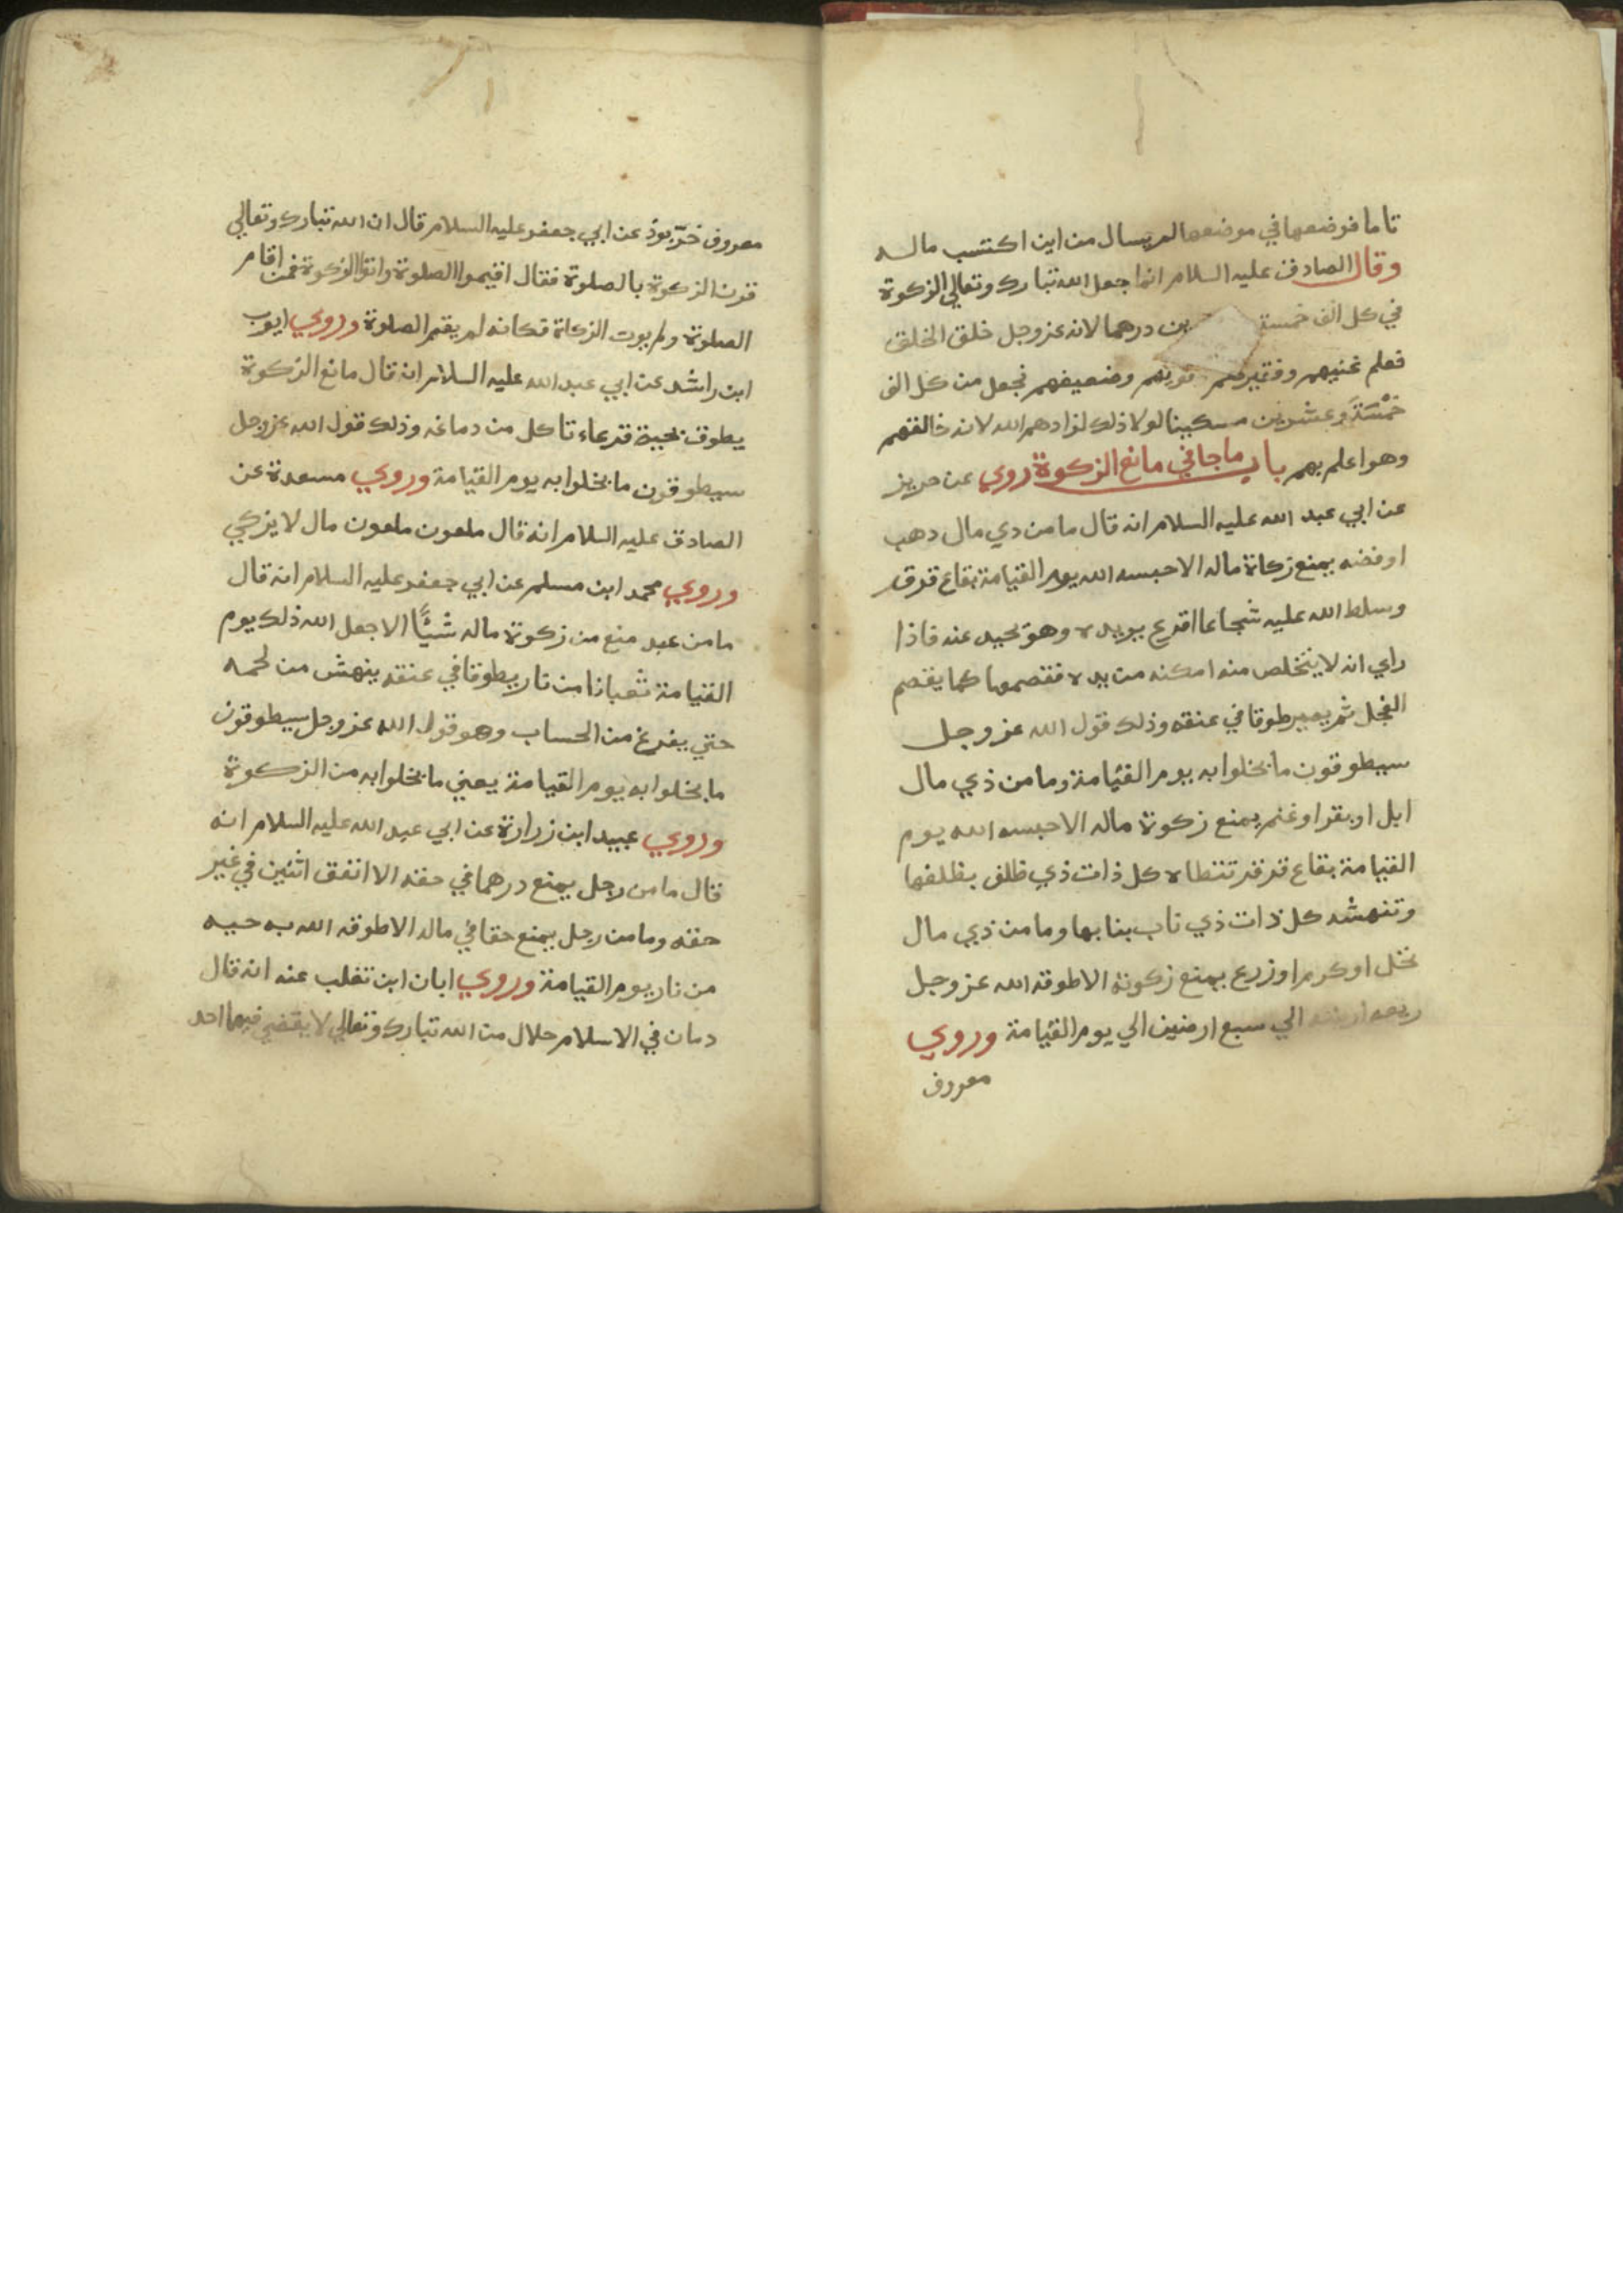 تاما فوضعها في موضعها لم يسال من اين اكتسب ماله
وقال الصادق عليه السلام انما جعل الله تبارك وتعالي الزكوة
في كل الف خمسة ين درهما لانه عز وجل خلق الخلق
فعلم غنيهم وفقيرهم قويهم وضعيفهم فجعل من كل الف
خمْسَةَ وعشرين مسكينا لولا ذلك لزادهم الله لانه خالقهم
وهو اعلم بهم باب ما جا في مانع الزكوة روي عن حريز
عن ابي عبد الله عليه السلام انه قال ما من دي مال دهب
او فضه يمنع زكاة ماله الا حبسه الله يوم القيامة بقاع قرق
وسلط الله عليه شجاعا اقرع يريده وهو يحيد عنه فاذا
راي انه لا يتخلص منه امكنه من يده فقصمها كما يقصم
الفجل ثم يصير طوقا في عنقه وذلك قول الله عز وجل
سيطوقون ما بخلوا به يوم القيامة وما من ذي مال
ابل او بقر او غنم يمنع زكوة ماله الا حبسه الله يوم
القيامة بقاع قرقر تنطاه كل ذات ذي ظلف بظلفها
وتنهشه كل ذات ذي ناب بنابها وما من ذي مال
نخل او كرم او زرع يمنع زكوته الا طوقه الله عز وجل
ريعه ارضه الي سبع ارضين الي يوم القيامة وروي
معروف
معروف خرّبوذ عن ابي جعفر عليه السلام قال ان الله تبارك وتعالي
قرن الزكوة بالصلوة فقال اقيموا الصلوة واتوا الزكوة فمن اقام
الصلوة ولم يوت الزكاة فكانه لم يقم الصلوة وروي ايوب
ابن راشد عن ابي عبد الله عليه السلام انه قال مانع الزكوة
يطوق بحية قرعاء تاكل من دماغه وذلك قول الله عز وجل
سيطوقون ما بخلوا به يوم القيامة وروي مسعدة عن
الصادق عليه السلام انه قال ملعون ملعون مال لا يزكي
وروي محمد ابن مسلم عن ابي جعفر عليه السلام انه قال
ما من عبد منع من زكوة ماله شيئًا الا جعل الله ذلك يوم
القيامة ثعبانا من نار يطوقا في عنقه ينهش من لحمه
حتي يفرغ من الحساب وهو قول الله عز وجل سيطوقون
ما بخلوا به يوم القيامة يعني ما بخلوا به من الزكوة
وروي عبيد ابن زرارة عن ابي عبد الله عليه السلام انه
قال ما من رجل يمنع درهما في حقه الا انفق اثنين في غير
حقه وما من رجل يمنع حقا في ماله الا طوقه الله به حيه
من نار يوم القيامة وروي ابان ابن تغلب عنه انه قال
دمان في الاسلام حلال من الله تبارك وتعالي لا يقضي فيهما احد